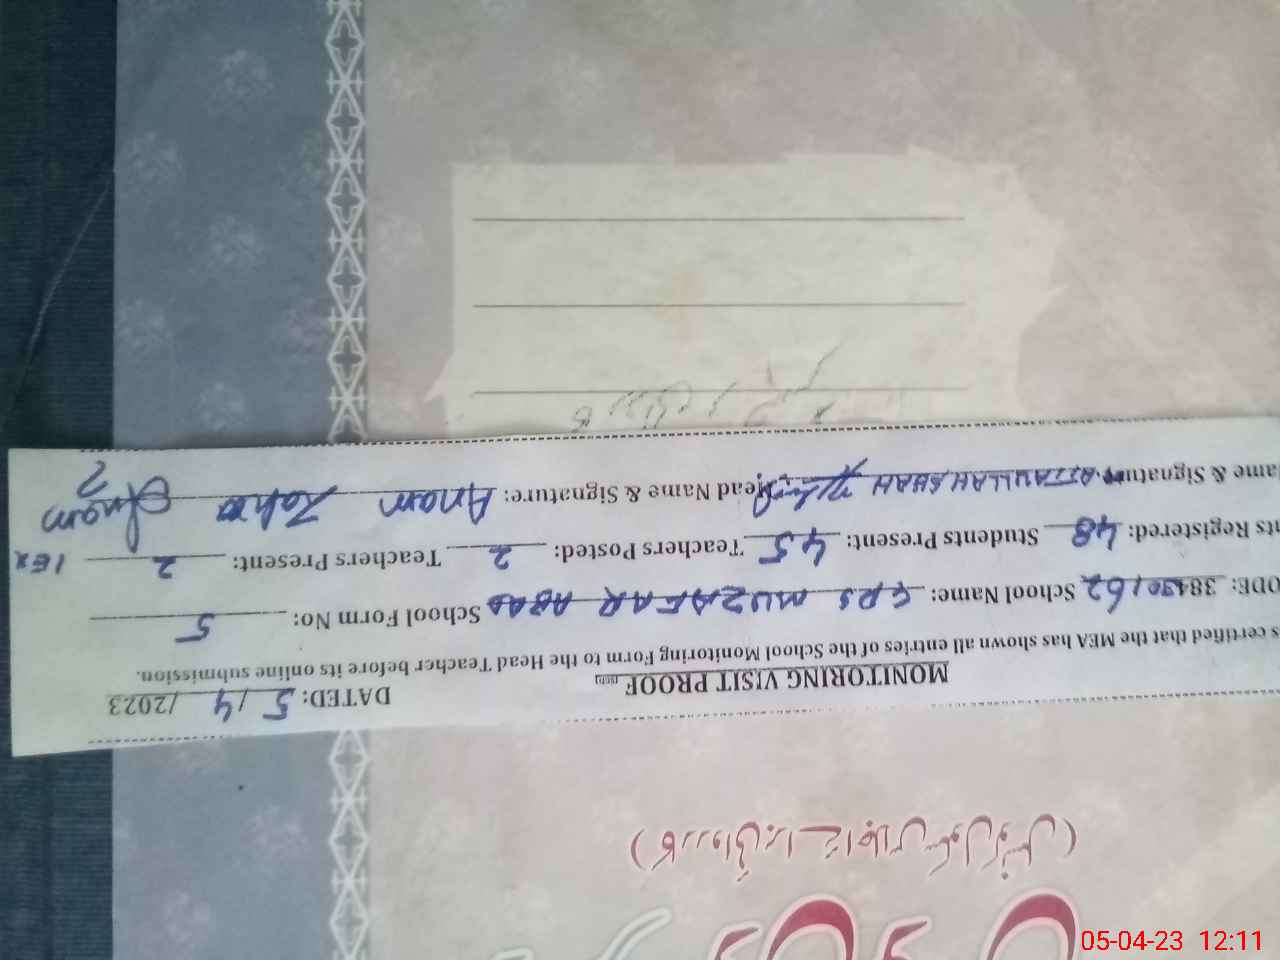 MONITORING VISIT PROOF DATED: 5/4/2023
s certified that the MEA has shown all entries of the School Monitoring Form to the Head Teacher before its online submission.
ODE: 38430162 School Name: GPS MUZAFAR ABAD School Form No: 5
ts Registered: 48 Students Present: 45 Teachers Posted: 2 Teachers Present: 2
ame & Signature: ATTAULLAH SHAH Head Name & Signature: Anam Zahra Anam
(کارروائی برائے اجلاس سکول کونسل)
05-04-23 12:11